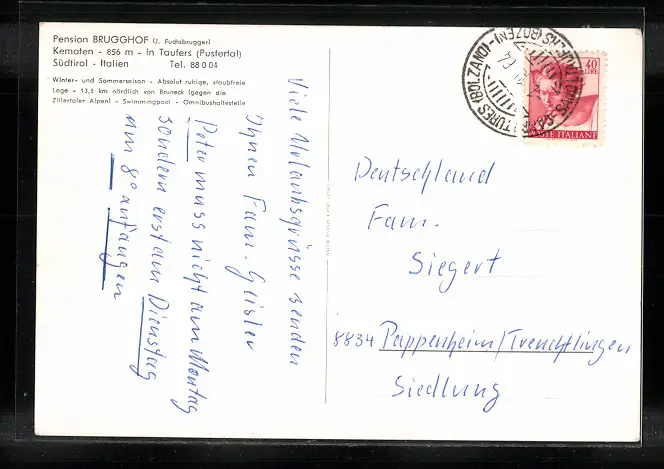 Pension BRUGGHOF (J. Fuchsbrugger)
Kematen - 856 m - in Taufers (Pustertal)
Südtirol - Italien Tel. 88 0 04
Winter- und Sommersaison - Absolut ruhige, staubfreie
Lage - 13,5 km nördlich von Bruneck (gegen die
Zillertaler Alpen) - Swimmingpool - Omnibushaltestelle
Viele Urlaubsgrüsse senden
Ihnen Fam. Geisler
Peter muss nicht am Montag
sondern erst am Dienstag
um 8° anfangen
40
LIRE
POSTE ITALIANE
(BOLZANO)
(BOZEN)
Deutschland
Fam.
Siegert
8834 Pappenheim/Treuchtlingen
Siedlung